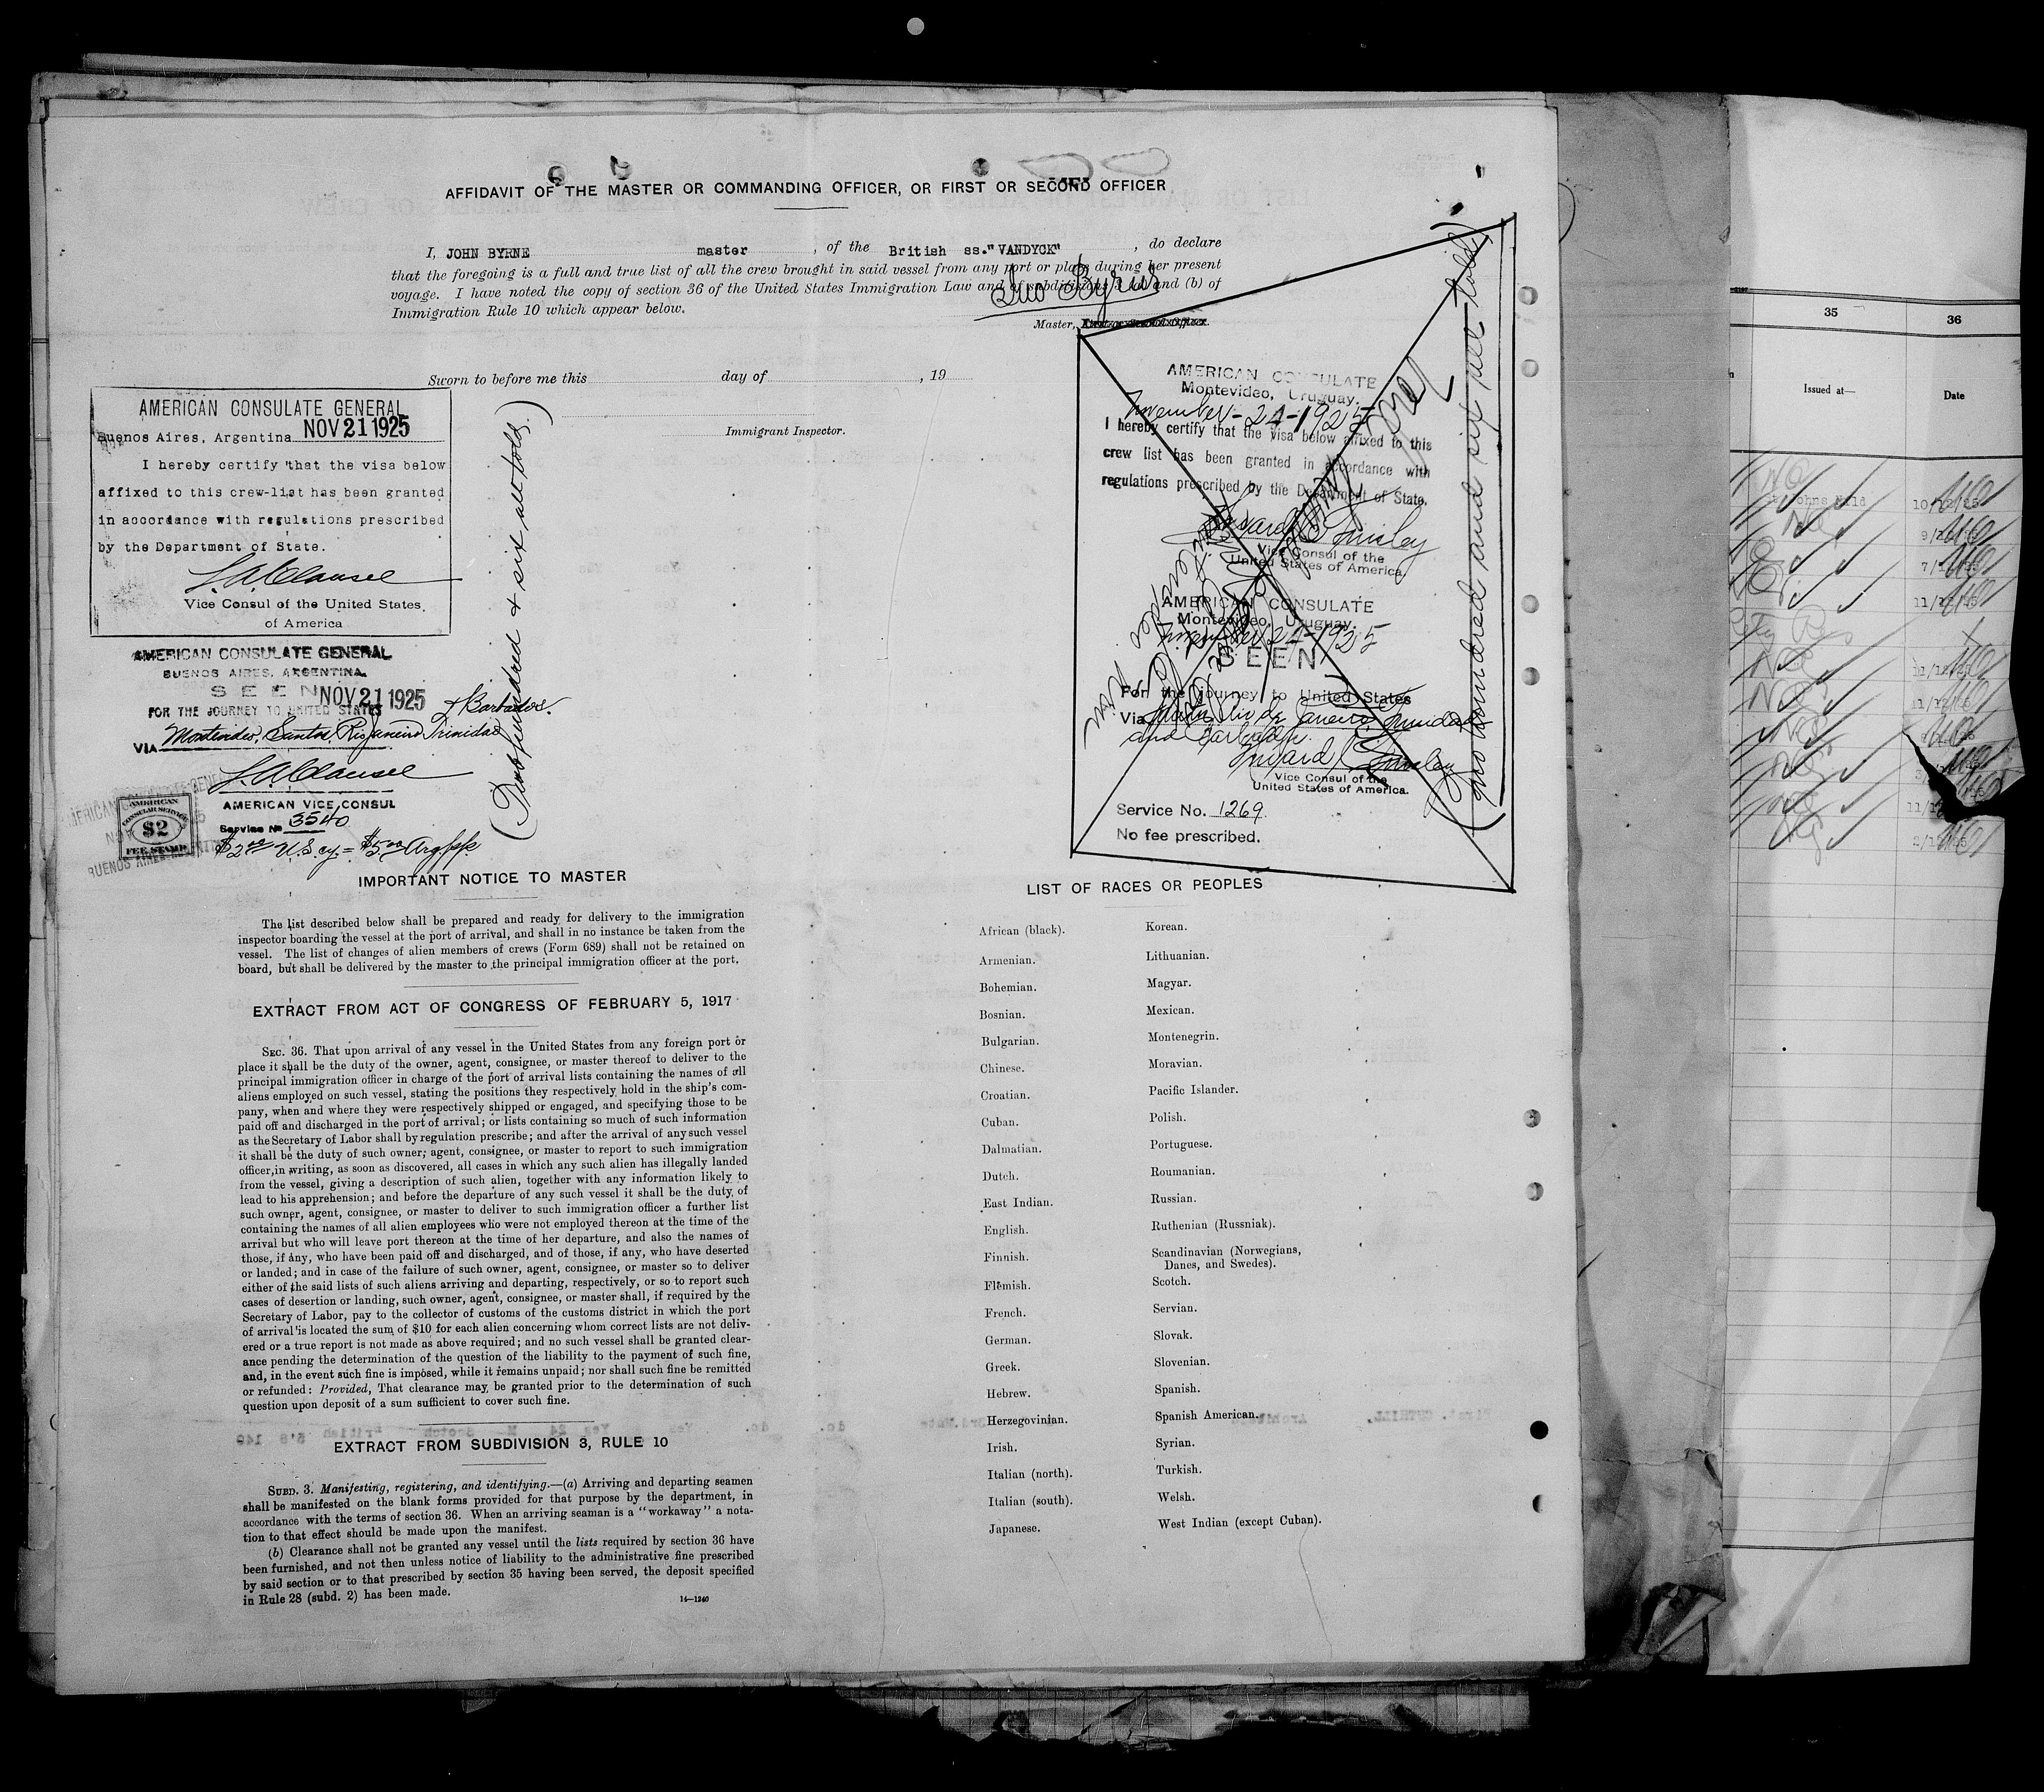 AFFIDAVIT OF THE MASTER OR COMMANDING OFFICER, OR FIRST OR SECOND OFFICER
I, JOHN BYRNE master, of the British ss. "VANDYCK", do declare
that the foregoing is a full and true list of all the crew brought in said vessel from any port or place during her present
voyage. I have noted the copy of section 36 of the United States Immigration Law and of subdivisions 3 (a) and (b) of
Immigration Rule 10 which appear below.
Jno Byrne
Master,
Sworn to before me this day of , 19
Immigrant Inspector.
AMERICAN CONSULATE GENERAL
Buenos Aires, Argentina NOV 21 1925
I hereby certify that the visa below
affixed to this crew-list has been granted
in accordance with regulations prescribed
by the Department of State.
Vice Consul of the United States
of America
AMERICAN CONSULATE GENERAL
BUENOS AIRES, ARGENTINA
SEEN NOV 21 1925
FOR THE JOURNEY TO UNITED STATES
& Barbados.
VIA Montevideo, Santos, Rio Janeiro Trinidad
AMERICAN VICE CONSUL
Service No 3540
$2.00 U.S. cy. = $5.00 Arg
AMERICAN
CONSULAR SERVICE
$2
FEE STAMP
BUENOS AIRES
(Two hundred & six all told.)
AMERICAN CONSULATE
Montevideo, Uruguay.
November-24-1925
I hereby certify that the visa below affixed to this
crew list has been granted in accordance with
regulations prescribed by the Department of State.
Vice Consul of the
United States of America.
AMERICAN CONSULATE
Montevideo, Uruguay.
November 24-1925
SEEN
For the journey to United States
Via Santos Rio de Janeiro, Trinidad
and Barbados.
Vice Consul of the
United States of America.
Service No. 1269
No fee prescribed.
(Two hundred and six all told)
IMPORTANT NOTICE TO MASTER
The list described below shall be prepared and ready for delivery to the immigration
inspector boarding the vessel at the port of arrival, and shall in no instance be taken from the
vessel. The list of changes of alien members of crews (Form 689) shall not be retained on
board, but shall be delivered by the master to the principal immigration officer at the port.
EXTRACT FROM ACT OF CONGRESS OF FEBRUARY 5, 1917
SEC. 36. That upon arrival of any vessel in the United States from any foreign port or
place it shall be the duty of the owner, agent, consignee, or master thereof to deliver to the
principal immigration officer in charge of the port of arrival lists containing the names of all
aliens employed on such vessel, stating the positions they respectively hold in the ship's com-
pany, when and where they were respectively shipped or engaged, and specifying those to be
paid off and discharged in the port of arrival; or lists containing so much of such information
as the Secretary of Labor shall by regulation prescribe; and after the arrival of any such vessel
it shall be the duty of such owner, agent, consignee, or master to report to such immigration
officer, in writing, as soon as discovered, all cases in which any such alien has illegally landed
from the vessel, giving a description of such alien, together with any information likely to
lead to his apprehension; and before the departure of any such vessel it shall be the duty of
such owner, agent, consignee, or master to deliver to such immigration officer a further list
containing the names of all alien employees who were not employed thereon at the time of the
arrival but who will leave port thereon at the time of her departure, and also the names of
those, if any, who have been paid off and discharged, and of those, if any, who have deserted
or landed; and in case of the failure of such owner, agent, consignee, or master so to deliver
either of the said lists of such aliens arriving and departing, respectively, or so to report such
cases of desertion or landing, such owner, agent, consignee, or master shall, if required by the
Secretary of Labor, pay to the collector of customs of the customs district in which the port
of arrival is located the sum of $10 for each alien concerning whom correct lists are not deliv-
ered or a true report is not made as above required; and no such vessel shall be granted clear-
ance pending the determination of the question of the liability to the payment of such fine,
and, in the event such fine is imposed, while it remains unpaid; nor shall such fine be remitted
or refunded: Provided, That clearance may be granted prior to the determination of such
question upon deposit of a sum sufficient to cover such fine.
EXTRACT FROM SUBDIVISION 3, RULE 10
SUBD. 3. Manifesting, registering, and identifying.—(a) Arriving and departing seamen
shall be manifested on the blank forms provided for that purpose by the department, in
accordance with the terms of section 36. When an arriving seaman is a "workaway" a nota-
tion to that effect should be made upon the manifest.
(b) Clearance shall not be granted any vessel until the lists required by section 36 have
been furnished, and not then unless notice of liability to the administrative fine prescribed
by said section or to that prescribed by section 35 having been served, the deposit specified
in Rule 28 (subd. 2) has been made.
14—1240
LIST OF RACES OR PEOPLES
African (black).
Armenian.
Bohemian.
Bosnian.
Bulgarian.
Chinese.
Croatian.
Cuban.
Dalmatian.
Dutch.
East Indian.
English.
Finnish.
Flemish.
French.
German.
Greek.
Hebrew.
Herzegovinian.
Irish.
Italian (north).
Italian (south).
Japanese.
Korean.
Lithuanian.
Magyar.
Mexican.
Montenegrin.
Moravian.
Pacific Islander.
Polish.
Portuguese.
Roumanian.
Russian.
Ruthenian (Russniak).
Scandinavian (Norwegians,
Danes, and Swedes).
Scotch.
Servian.
Slovak.
Slovenian.
Spanish.
Spanish American.
Syrian.
Turkish.
Welsh.
West Indian (except Cuban).
35 36
Issued at— Date